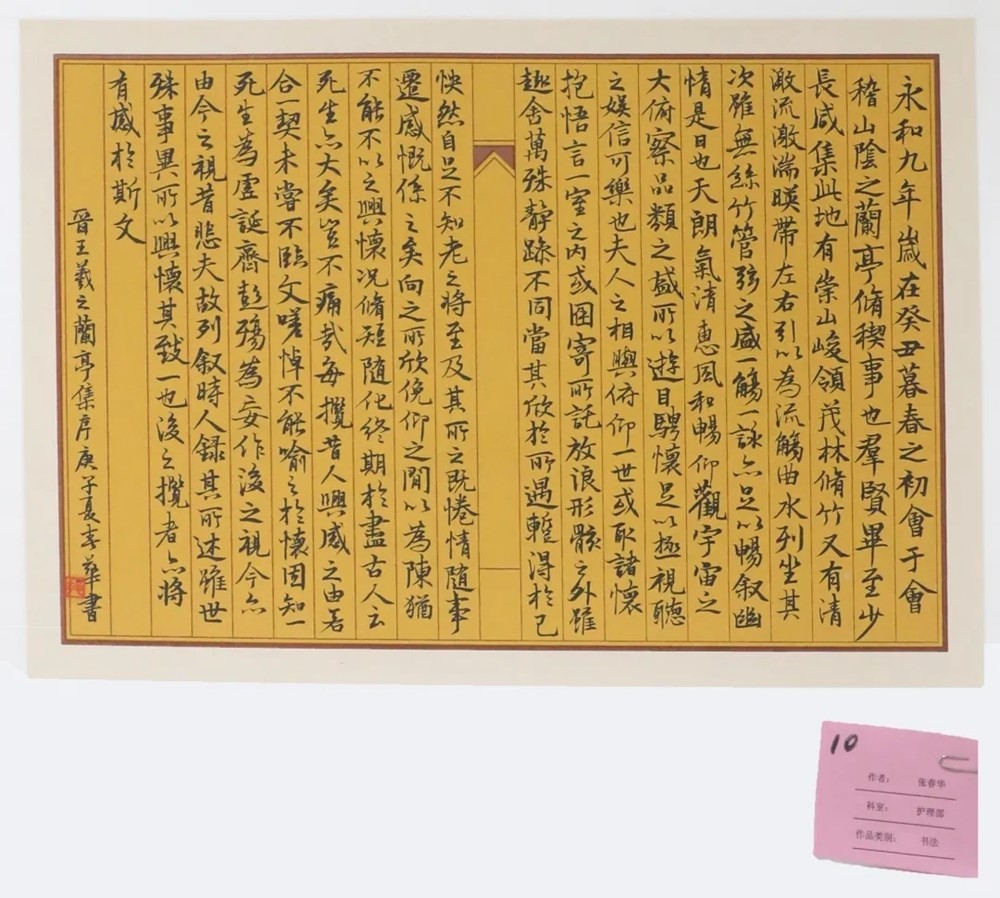 永和九年歲在癸丑暮春之初會于會
稽山陰之蘭亭脩稧事也羣賢畢至少
長咸集此地有崇山峻領茂林脩竹又有清
激流激湍暎帶左右引以為流觴曲水列坐其
次雖無絲竹管弦之盛一觴一詠亦足以暢叙幽
情是日也天朗氣清惠風和暢仰觀宇宙之
大俯察品類之盛所以遊目騁懷足以極視聽
之娛信可樂也夫人之相與俯仰一世或取諸懷
抱悟言一室之内或因寄所託放浪形骸之外雖
趣舍萬殊靜躁不同當其欣於所遇暫得於己
怏然自足不知老之將至及其所之既惓情隨事
遷感慨係之矣向之所欣俛仰之閒以為陳猶
不能不以之興懷況脩短隨化終期於盡古人云
死生亦大矣豈不痛哉每攬昔人興感之由若
合一契未嘗不臨文嗟悼不能喻之於懷固知一
死生為虛誕齊彭殤為妄作後之視今亦
由今之視昔悲夫故列叙時人録其所述雖世
殊事異所以興懷其致一也後之攬者亦將
有感於斯文
晉王羲之蘭亭集序庚子夏春華書
10
作者： 张春华
科室： 护理部
作品类别： 书法